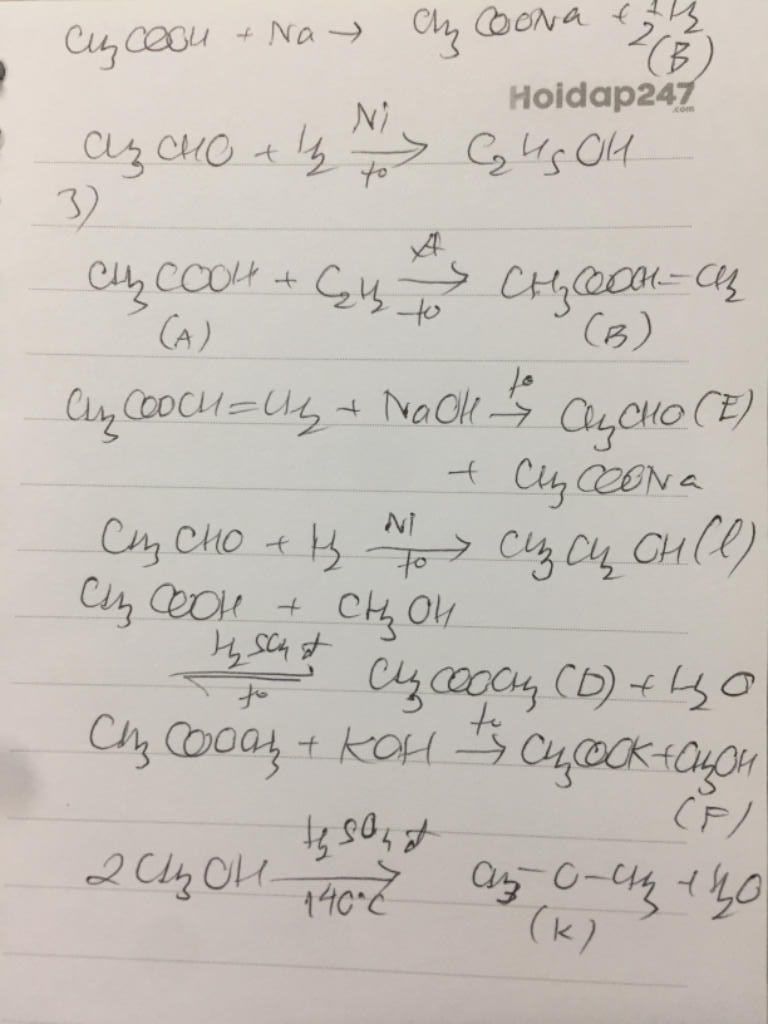 CH3COOH + Na → CH3COONa + 1/2 H2
(B)
Hoidap247
.com
CH3CHO + H2 Ni → to C2H5OH
3)
CH3COOH + C2H2 xt → to CH3COOCH=CH2
(A) (B)
CH3COOCH=CH2 + NaOH to → CH3CHO (E)
+ CH3COONa
CH3CHO + H2 Ni → to CH3CH2OH (l)
CH3COOH + CH3OH
H2SO4 đ ⇌ to CH3COOCH3 (D) + H2O
CH3COOCH3 + KOH to → CH3COOK + CH3OH
(F)
2CH3OH H2SO4 đ → 140°C CH3-O-CH3 + H2O
(K)